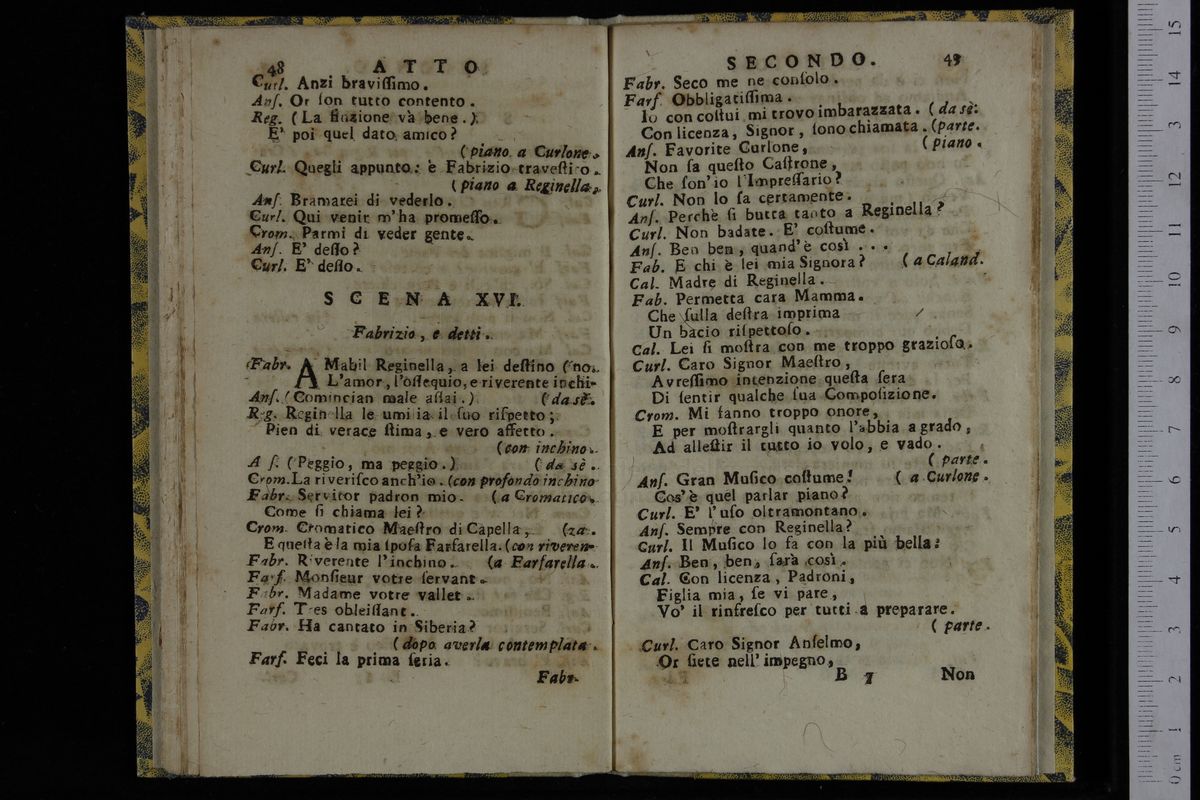 48 ATTO
Curl. Anzi braviſſimo.
Anſ. Or ſon tutto contento.
Reg. (La finzione và bene.)
E' poi quel dato amico?
(piano a Curlone.
Curl. Quegli appunto: è Fabrizio traveſtito.
(piano a Reginella.
Anſ. Bramarei di vederlo.
Curl. Qui venir m'ha promeſſo.
Crom. Parmi di veder gente.
Anſ. E' deſſo?
Curl. E' deſſo.
SCENA XVI.
Fabrizio, e detti.
Fabr. AMabil Reginella, a lei deſtino (no.
L'amor, l'oſſequio, e riverente inchi-
Anſ. (Comincian male aſſai.) (da sè.
Reg. Reginella le umilia il ſuo riſpetto;
Pien di verace ſtima, e vero affetto.
(con inchino.
Anſ. (Peggio, ma peggio.) (da sè.
Crom. La riveriſco anch'io. (con profondo inchino
Fabr. Servitor padron mio. (a Cromatico.
Come ſi chiama lei?
Crom. Cromatico Maeſtro di Capella, (za.
E queſta è la mia ſpoſa Farfarella. (con riveren-
Fabr. Riverente l'inchino. (a Farfarella.
Farf. Monſieur votre ſervant.
Fabr. Madame votre vallet.
Farf. Tres obleiſſant.
Fabr. Ha cantato in Siberia?
(dopo averla contemplata.
Farf. Feci la prima ſeria.
Fabr.
SECONDO. 49
Fabr. Seco me ne conſolo.
Farf Obbligatiſſima.
Io con coſtui mi trovo imbarazzata. (da sè:
Con licenza, Signor, ſono chiamata. (parte.
Anſ. Favorite Curlone, (piano.
Non ſa queſto Caſtrone,
Che ſon'io l'Impreſſario?
Curl. Non lo ſa certamente.
Anſ. Perchè ſi butta tanto a Reginella?
Curl. Non badate. E' coſtume.
Anſ. Ben ben, quand'è così . . .
Fab. E chi è lei mia Signora? (a Caland.
Cal. Madre di Reginella.
Fab. Permetta cara Mamma.
Che ſulla deſtra imprima
Un bacio riſpettoſo.
Cal. Lei ſi moſtra con me troppo grazioſo.
Curl. Caro Signor Maeſtro,
Avreſſimo intenzione queſta ſera
Di ſentir qualche ſua Compoſizione.
Crom. Mi fanno troppo onore,
E per moſtrargli quanto l'abbia a grado,
Ad alleſtir il tutto io volo, e vado.
(parte.
Anſ. Gran Muſico coſtume! (a Curlone.
Cos'è quel parlar piano?
Curl. E' l'uſo oltramontano.
Anſ. Sempre con Reginella?
Curl. Il Muſico lo fa con la più bella:
Anſ. Ben, ben, ſarà così.
Cal. Con licenza, Padroni,
Figlia mia, ſe vi pare,
Vo' il rinfreſco per tutti a preparare.
(parte.
Curl. Caro Signor Anſelmo,
Or ſiete nell' impegno,
B 7 Non
15
14
3
12
11
10
9
8
7
6
5
4
3
2
1
0 cm